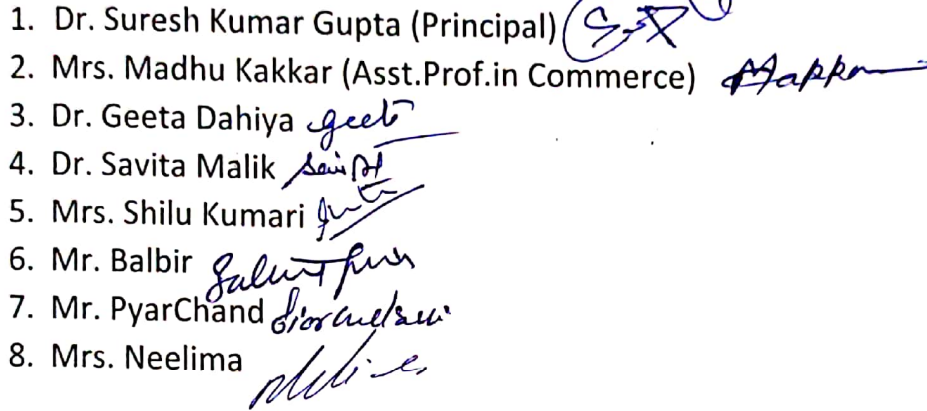 1. Dr. Suresh Kumar Gupta (Principal)
2. Mrs. Madhu Kakkar (Asst.Prof.in Commerce)
3. Dr. Geeta Dahiya
4. Dr. Savita Malik
5. Mrs. Shilu Kumari
6. Mr. Balbir
7. Mr. PyarChand
8. Mrs. Neelima